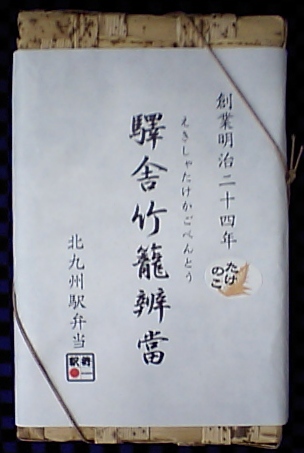 創業明治二十四年
たけのこ
えきしゃたけかごべんとう
驛舎竹籠辨當
北九州駅弁当